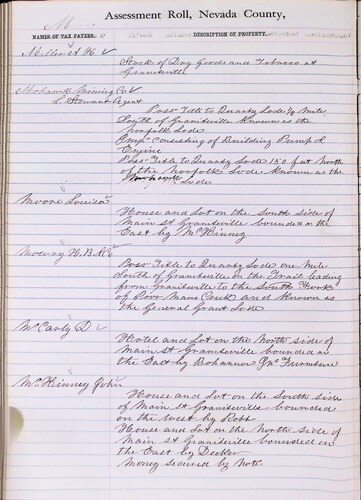 M
Assessment Roll, Nevada County,
NAMES OF TAX PAYERS.
DESCRIPTION OF PROPERTY.
Stock of Dry Goods and Tobacco at
Graniteville
Mohawk Mining Co
L Stewart Agent
Poss Title to Quartz Lode 1/2 Mile
South of Graniteville Known as the
Norfolk Lode
Imp Consisting of Building Pump &
Engine
Poss Title to Quartz Lode 150 feet North
of the Norfolk Lode Known as the
Lode
Moore Louisa
House and Lot on the South side of
Main St Graniteville bounded on the
East by McKinney
H. B.
Poss Title to Quartz Lode one Mile
South of Graniteville on the Trail leading
from Graniteville to the South Fork
of Poor Mans Creek and Known as
the General Grant Lode
McCarty D
Hotel and Lot on the North side of
Main St Graniteville bounded on
the East by Furniture
McKinney John
House and Lot on the South side
of Main St Graniteville bounded
on the West by
House and Lot on the North side of
Main St Graniteville bounded on
the East by Decker
Money secured by Note